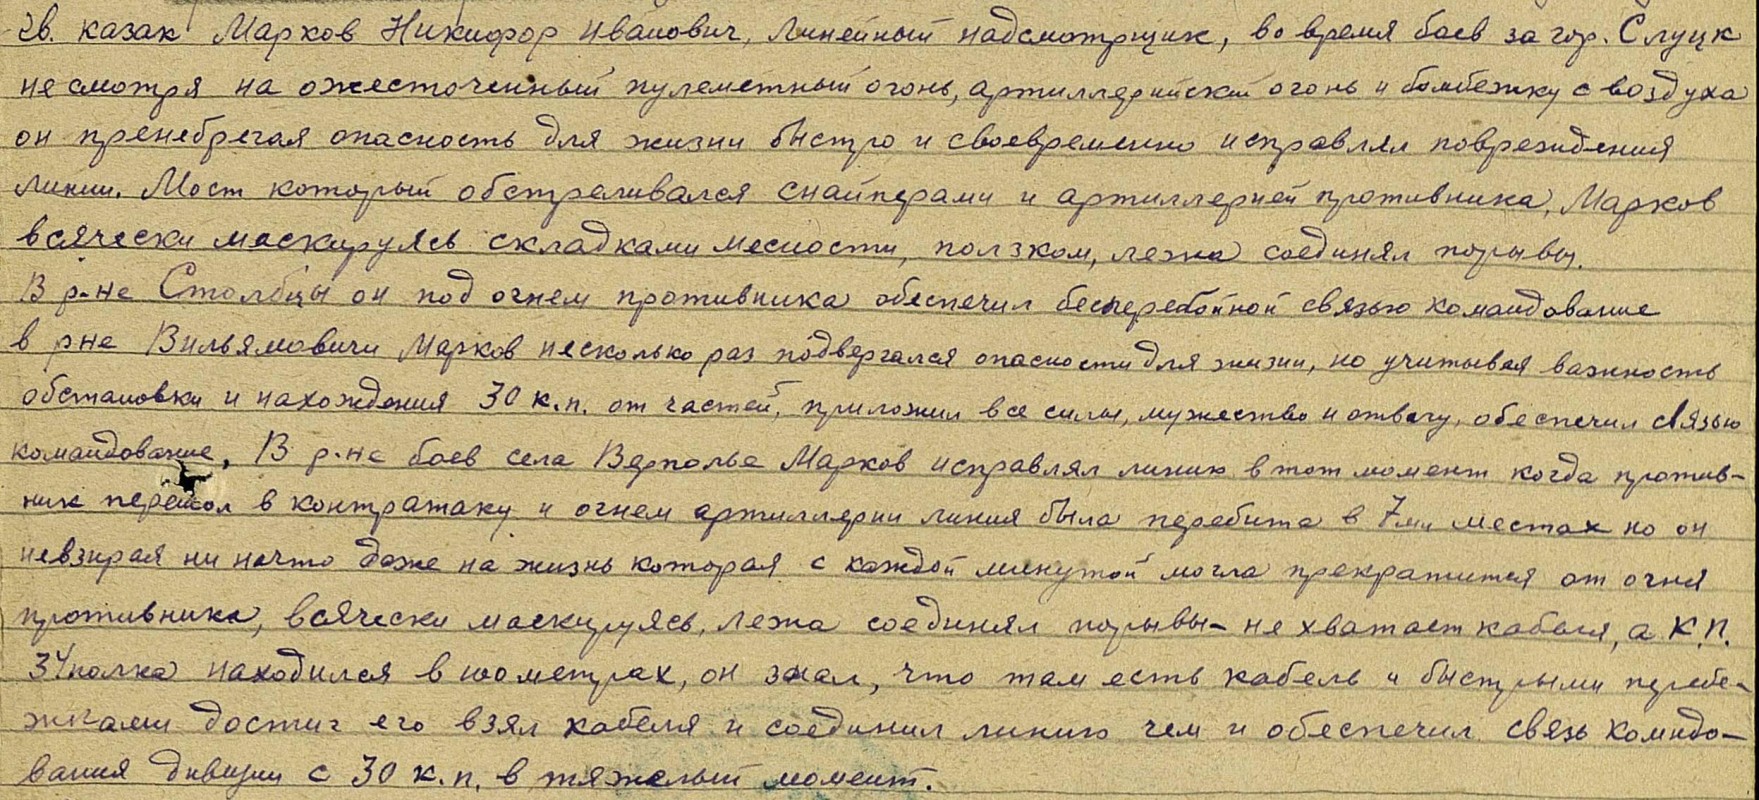 гв. казак Марков Никифор Иванович, линейный надсмотрщик, во время боев за гор. Слуцк
не смотря на ожесточенный пулеметный огонь, артиллерийский огонь и бомбежку с воздуха
он пренебрегая опасность для жизни быстро и своевременно исправлял повреждения
линии. Мост который обстреливался снайперами и артиллерией противника, Марков
всячески маскируясь складками месности, ползком, лежа соединял порывы.
В р-не Столбцы он под огнем противника обеспечил бесперебойной связью командование
в рне Вильямовичи Марков несколько раз подвергался опасности для жизни, но учитывая важность
обстановки и нахождения 30 к.п. от частей, приложил все силы, мужество и отвагу, обеспечил связью
командование. В р-не боев села Верполье Марков исправлял линию в тот момент когда против-
ник перешол в контратаку и огнем артиллерии линия была перебита в 7ми местах но он
невзирая ни начто даже на жизнь которая с каждой минутой могла прекратится от огня
противника, всячески маскируясь, лежа соединял порывы- не хватает кабеля, а К.П.
34полка находился в 100 метрах, он знал, что там есть кабель и быстрыми перебе-
жками достиг его взял кабеля и соединил линию чем и обеспечил связь комндо-
вания дивизии с 30 к.п. в тяжелый момент.